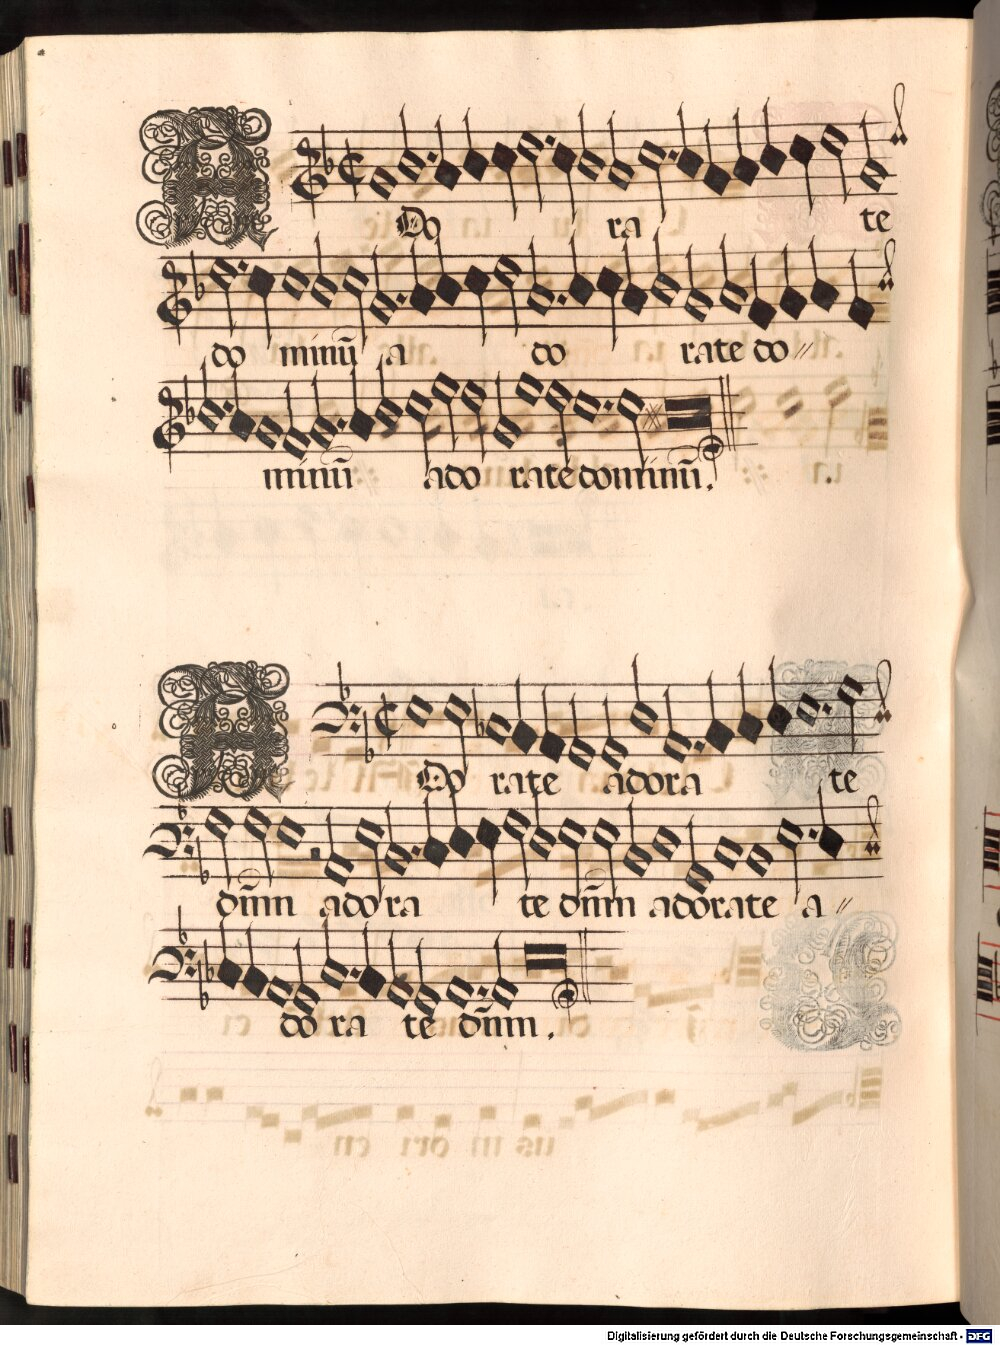 ADo ra te
do minū a do rate do//
minū ado rate dominū.
ADo rate adora te
dm̄n ado ra te dm̄n adorate a //
do ra te dm̄n.
Digitalisierung gefördert durch die Deutsche Forschungsgemeinschaft - DFG